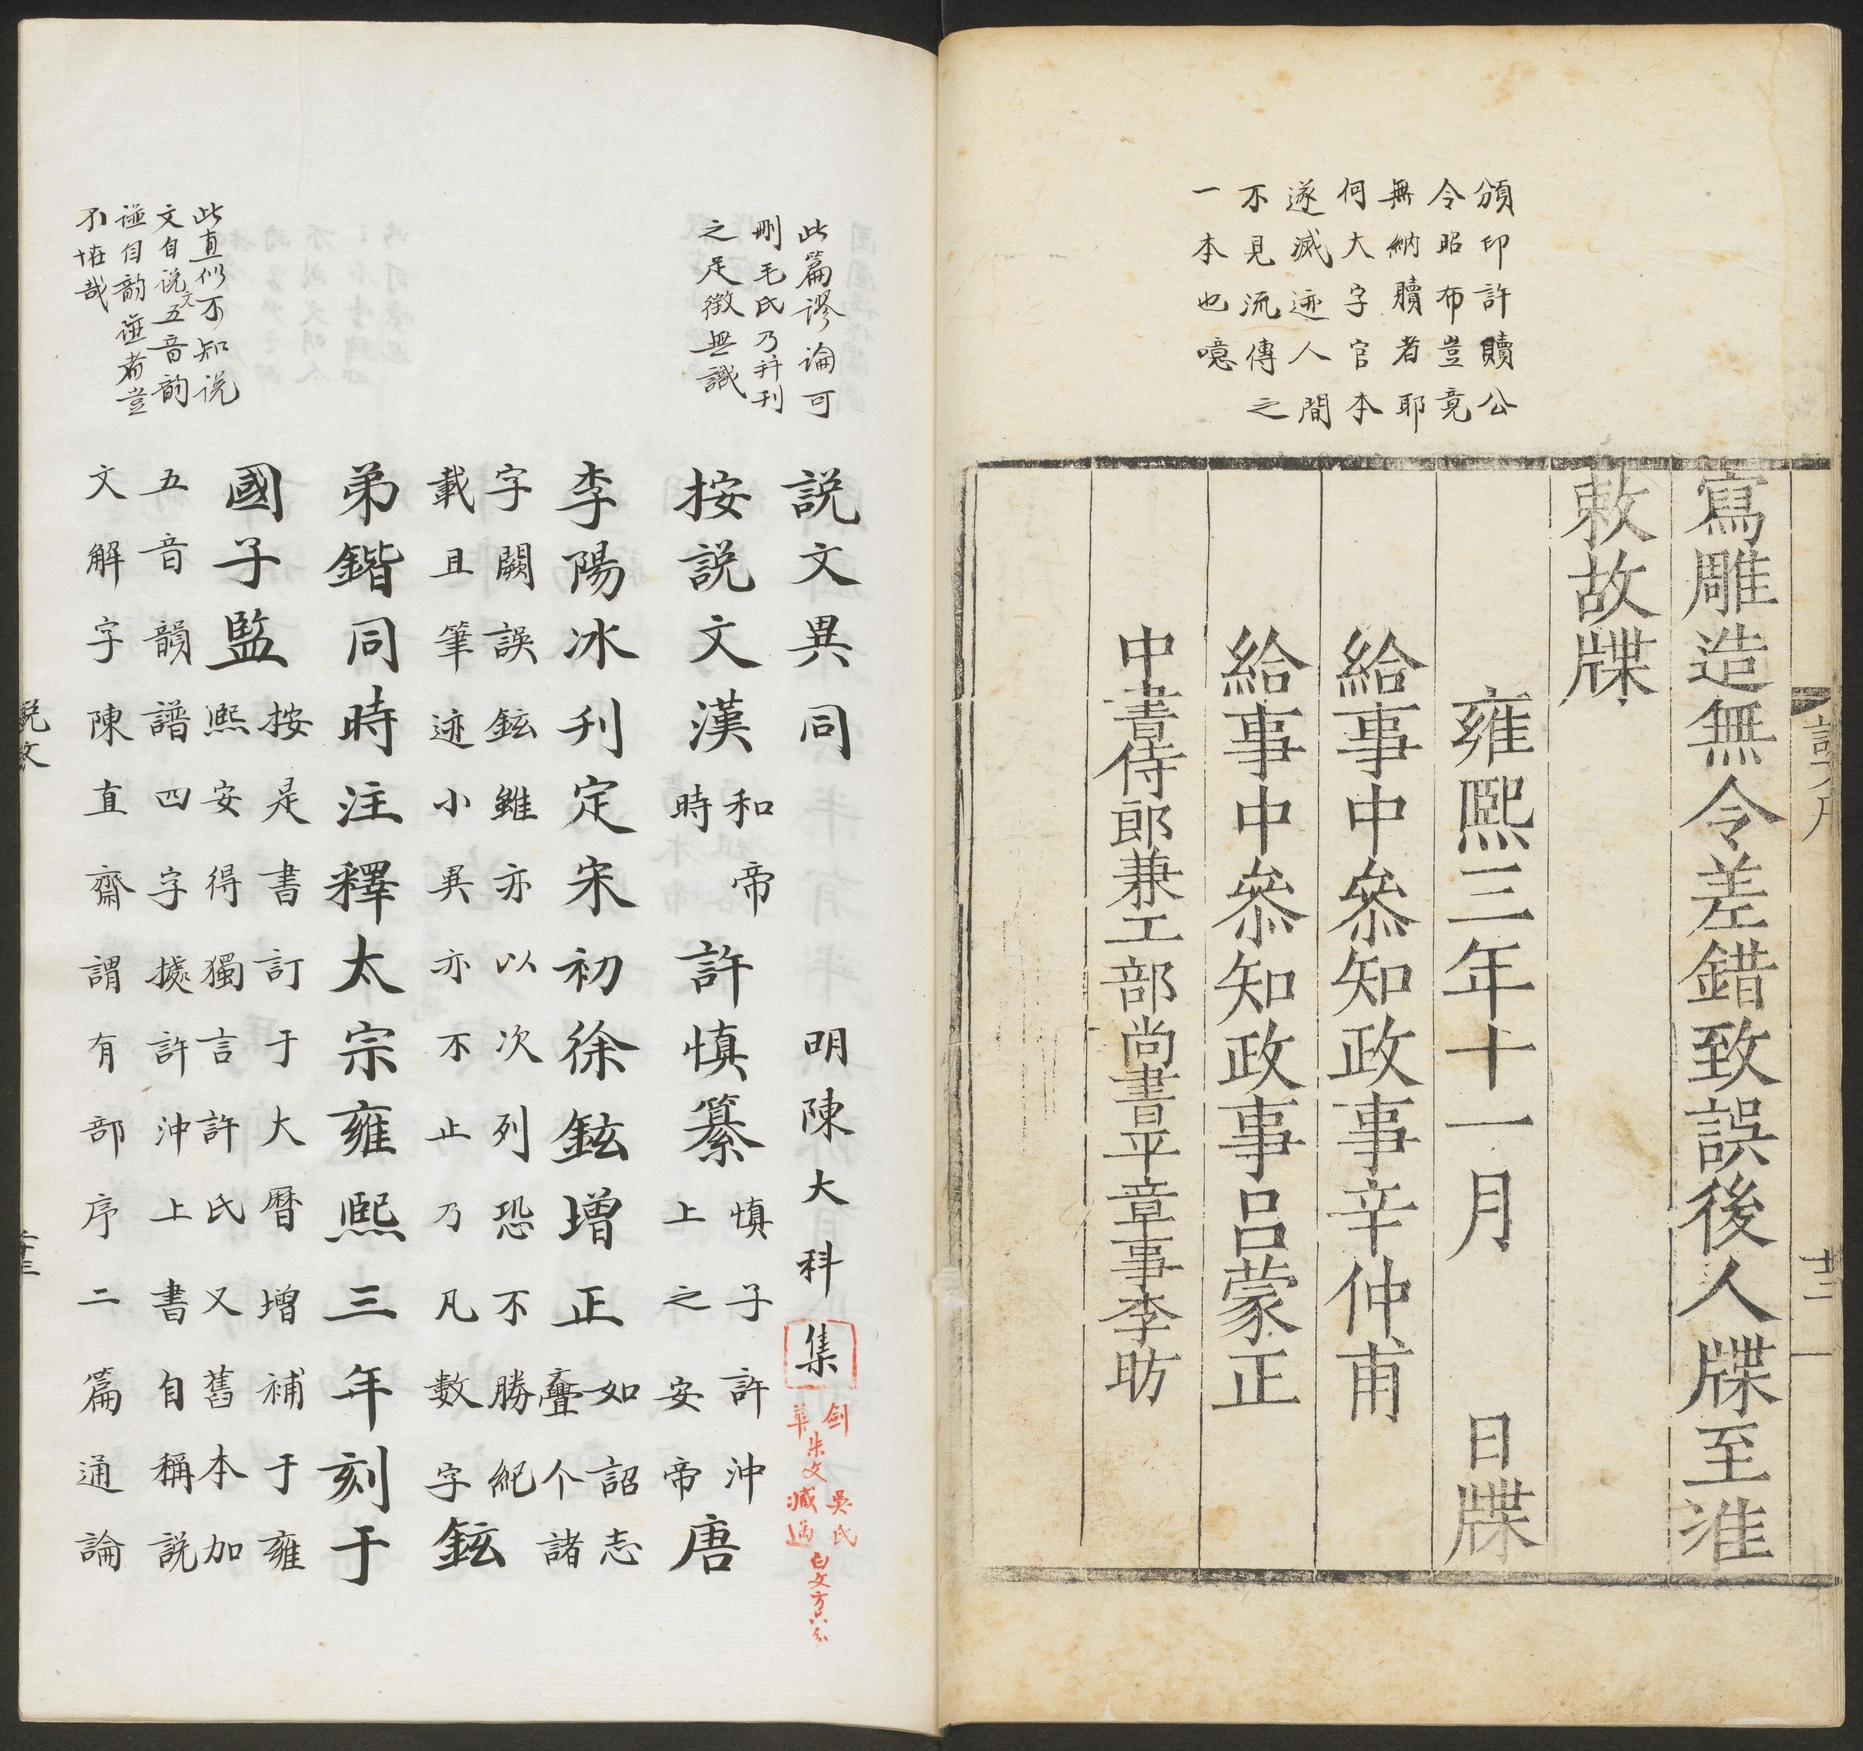 頒印許贖公
令昭布豈竟
無納贖者耶
何大字官本
遂滅迹人間
不見流傳之
一本也噫
寫雕造無令差錯致誤後人牒至准
敕故牒
雍熙三年十一月 日牒
給事中參知政事辛仲甫
給事中參知政事呂蒙正
中書侍郎兼工部尚書平章事李昉
十二
此篇謬論可
刪毛氏乃并刊
之足徵無識
此直似不知说
文自说文五音韵
譜自韵譜者豈
不怪哉
説文異同 明陳大科集
劍
華
朱文
吳氏
减過
白文方
按説文漢和帝時許慎纂慎子許沖上之安帝唐
李陽冰刊定宋初徐鉉增正如詔志諸疊个
字闕誤鉉雖亦以次列恐不勝紀
載且筆迹小異亦不止乃凡數字鉉
弟鍇同時注釋太宗雍熙三年刻于
國子監按是書訂于大曆增補于雍
熙安得獨言許氏又舊本加
五音韻譜四字據許沖上書自稱説
文解字陳直齋謂有部序二篇通論
説文